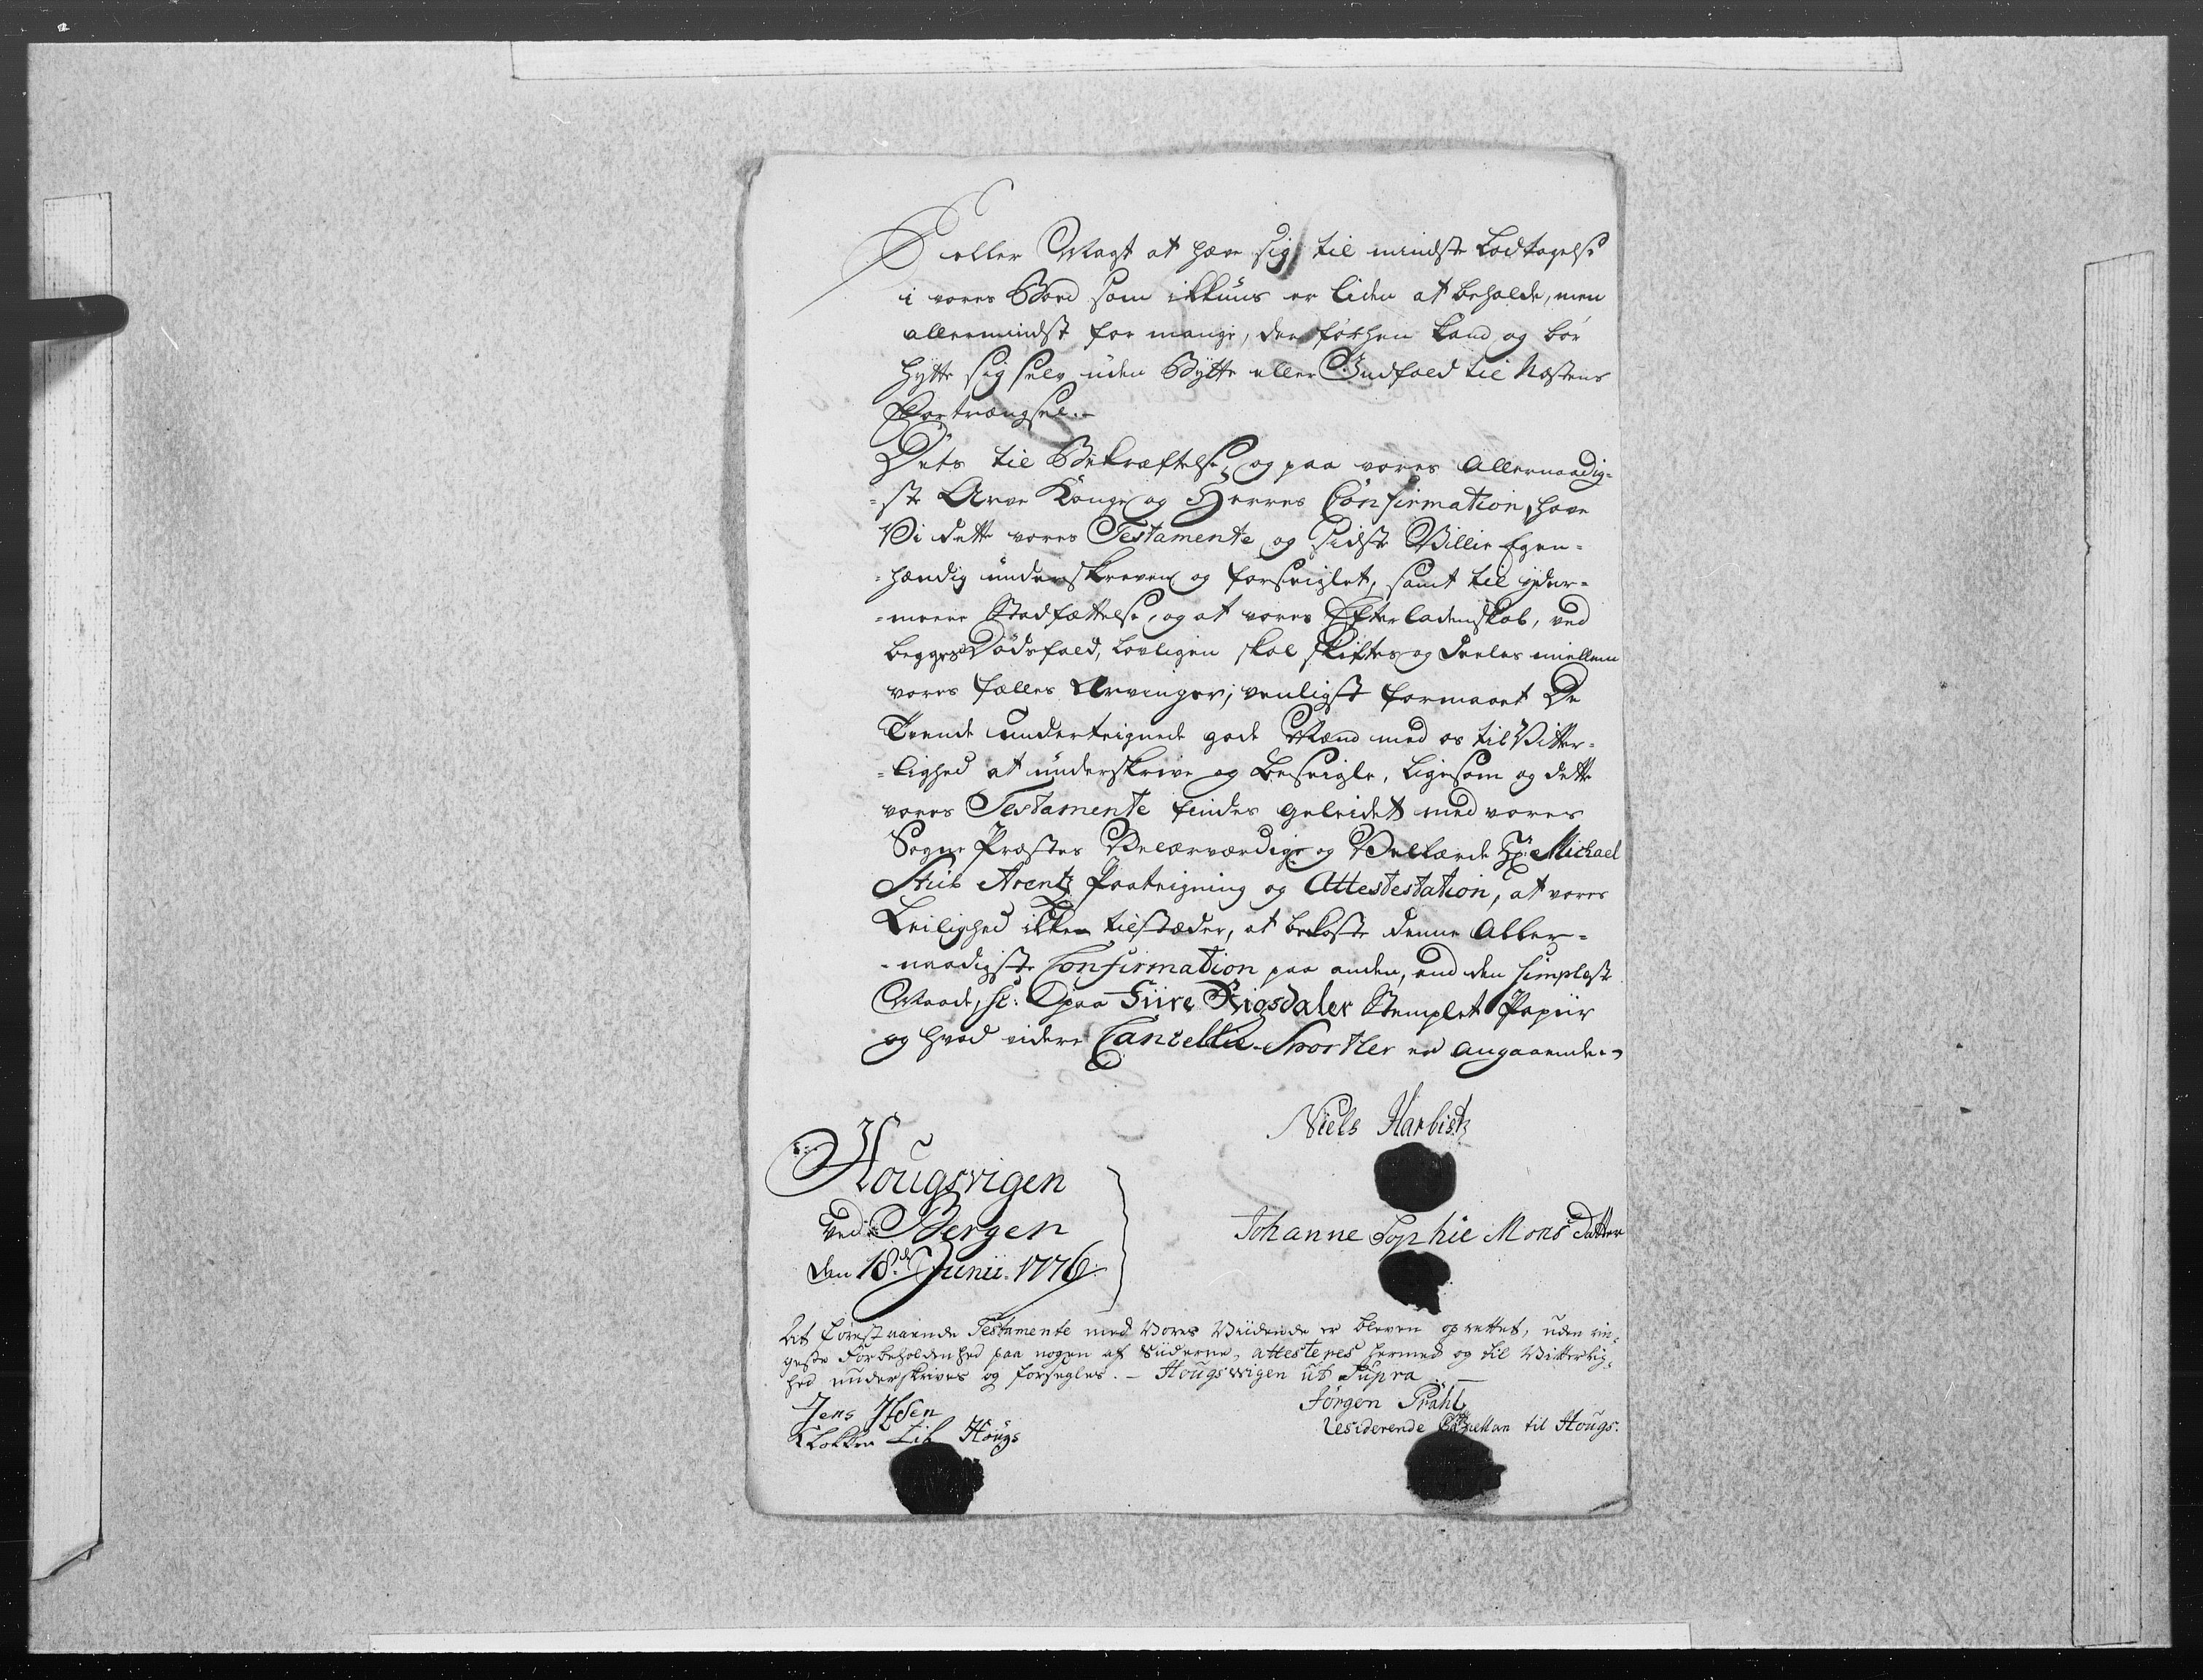 eller Magt at have sig til mindste Lodtagelse
i vores Boed som ikkuns er liden at beholde, men
allermindst for mange, der forhen kand og bör
hytte sig selv uden Bytte eller Indfald til Næstens
Fortrængsel.-
Dets til Bekræftelse, og paa vores Allernaadig=
=ste Arve Konge og Herres Confirmation, have
Vi dette vores Testamente og sidste Villie Egen=
=hændig underskreven og forseiglet, samt til yder=
=meere Stadfæstelse, og at vores Efterladenskab, ved
begges Dödsfald, lovligen skal skiftes og deeles mellem
vores fælles Arvinger; venligst formaaet De
Tvende undertegnede gode Mænd med os til Vitter=
=lighed at underskrive og besegle, ligesom og dette
vores Testamente findes geleidet med vores
Sogne Præstes Velærværdige og Vellærde Hr: Michael
Stub Arentz Paategning og Attestestation, at vores
Leilighed ikke tilstæder, at bekoste denne Aller=
=naadigste Confirmation paa anden, end den simpleste
Maade, sc: paa Fiire Rigsdaler Stemplet Papiir
og hvad videre Cancellie-Sportler er angaaende.
Niels Harbistz
Hougsvigen
ved Bergen
den 18de Junii 1776.
Johanne Sophie Mons Datter
At forestaaende Testamente med Vores Viidende er bleven oprettet, uden rin=
geste Forbeholdenhed paa nogen af Siiderne, attesteres hermed og til Vitterlig=
hed underskrives og forsegles. - Hougsvigen ut Supra
Jens Ibsen
Klokker til Hougs
Jørgen Prahl
Residerende Capellan til Hougs.